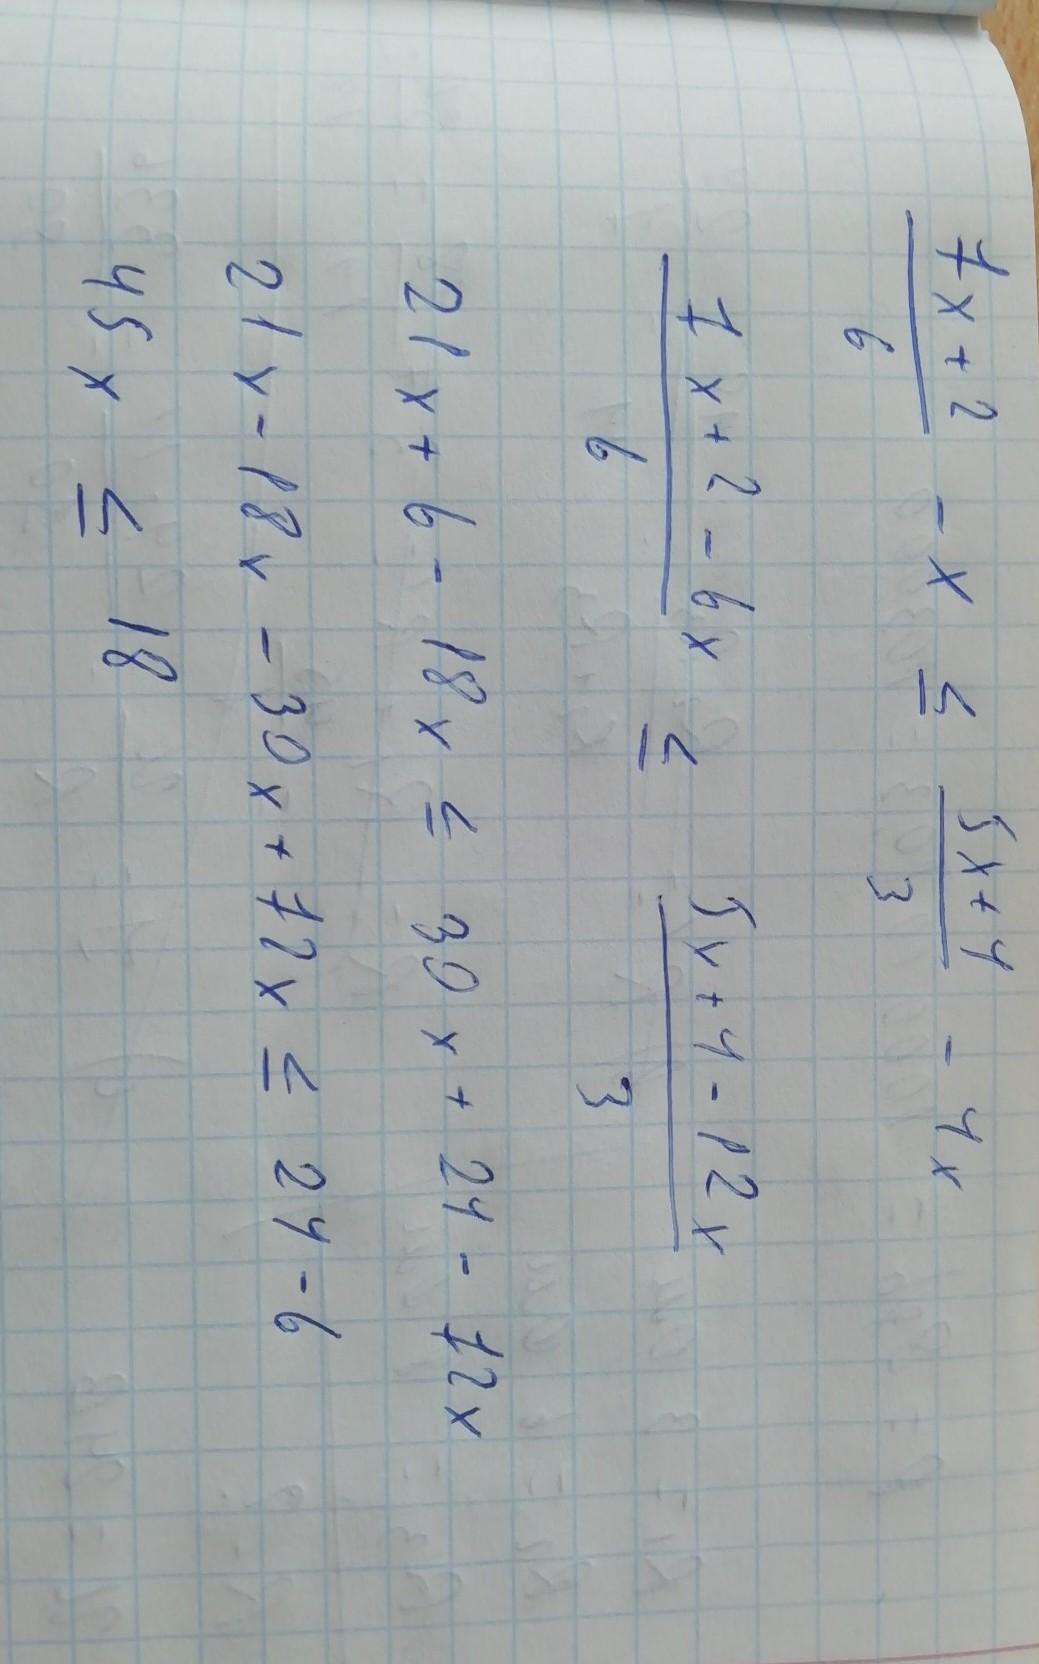 \frac{7x+2}{6} - x ≤ \frac{5x+4}{3} - 4x
\frac{7x+2-6x}{6} ≤ \frac{5x+4-12x}{3}
21x + 6 - 18x ≤ 30x + 24 - 72x
21x - 18x - 30x + 72x ≤ 24 - 6
45x ≤ 18